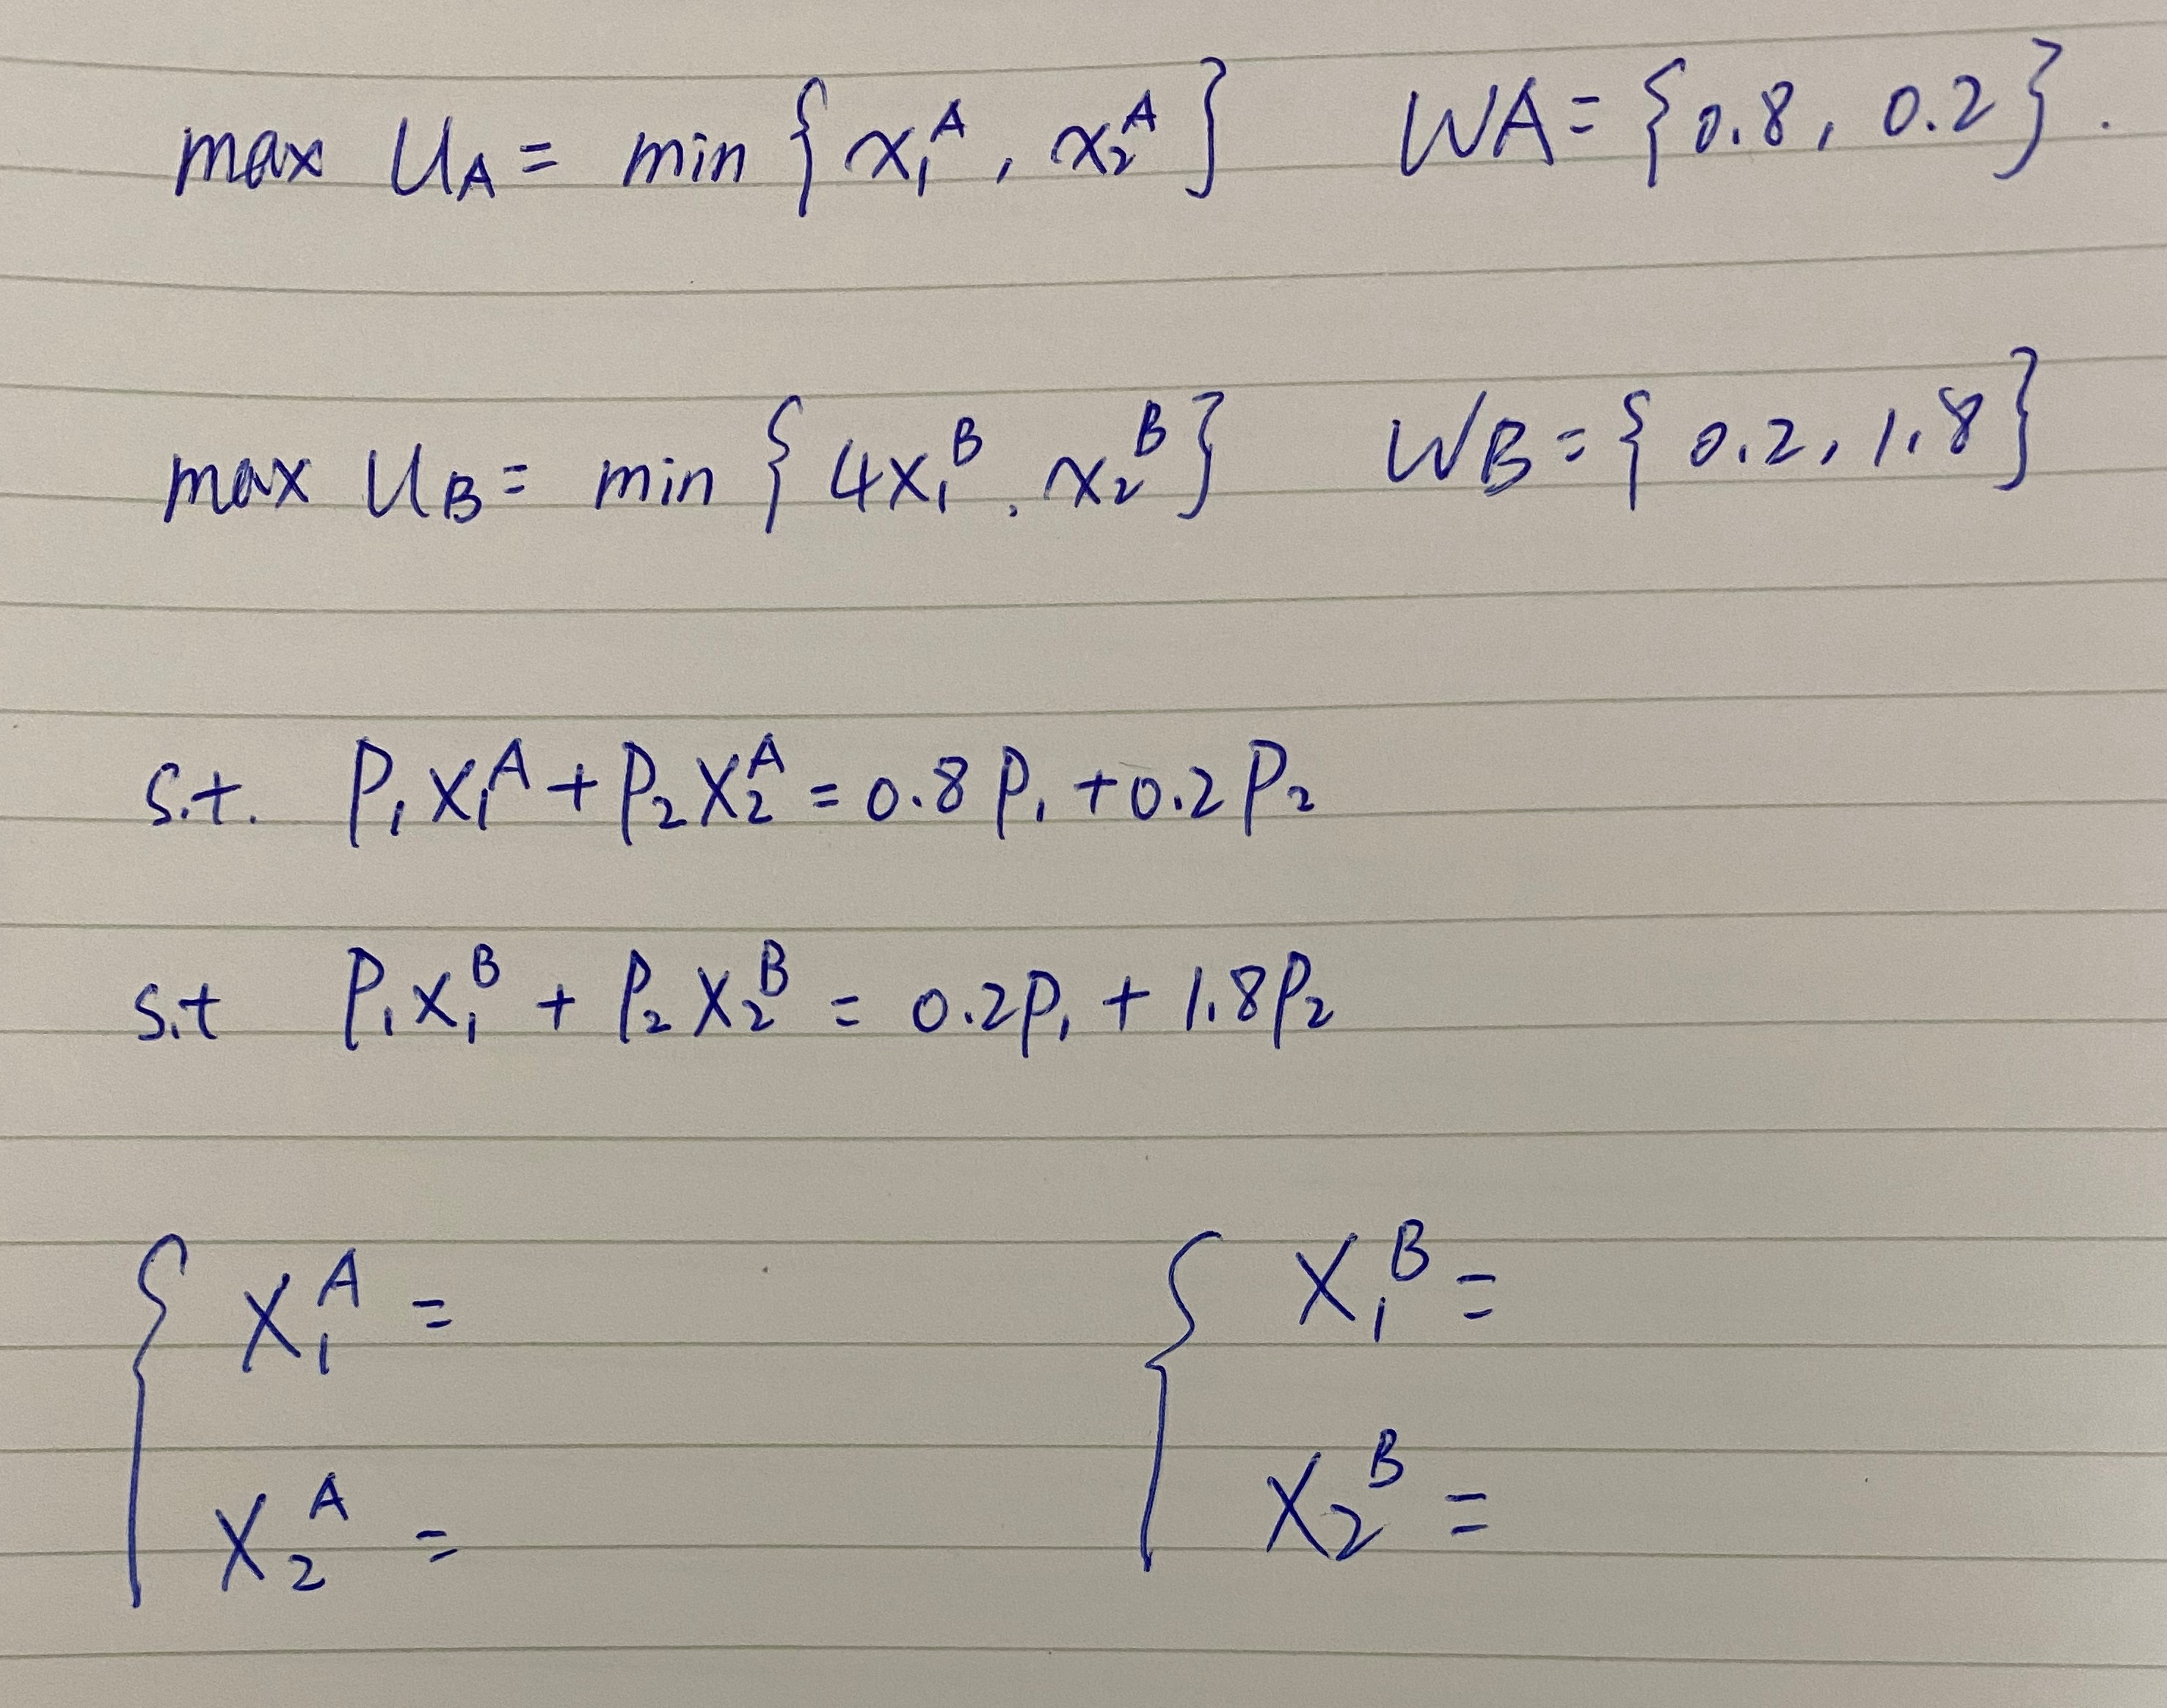 max U_A = min { x₁ᴬ, x₂ᴬ } WA = { 0.8, 0.2 }.
max U_B = min { 4x₁ᴮ, x₂ᴮ } WB = { 0.2, 1.8 }
s.t. P₁x₁ᴬ + P₂x₂ᴬ = 0.8P₁ + 0.2P₂
s.t P₁x₁ᴮ + P₂x₂ᴮ = 0.2P₁ + 1.8P₂
{ x₁ᴬ = { x₁ᴮ =
x₂ᴬ = x₂ᴮ =